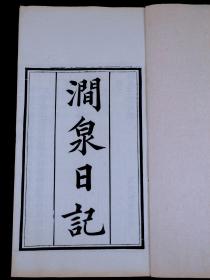 澗泉日記